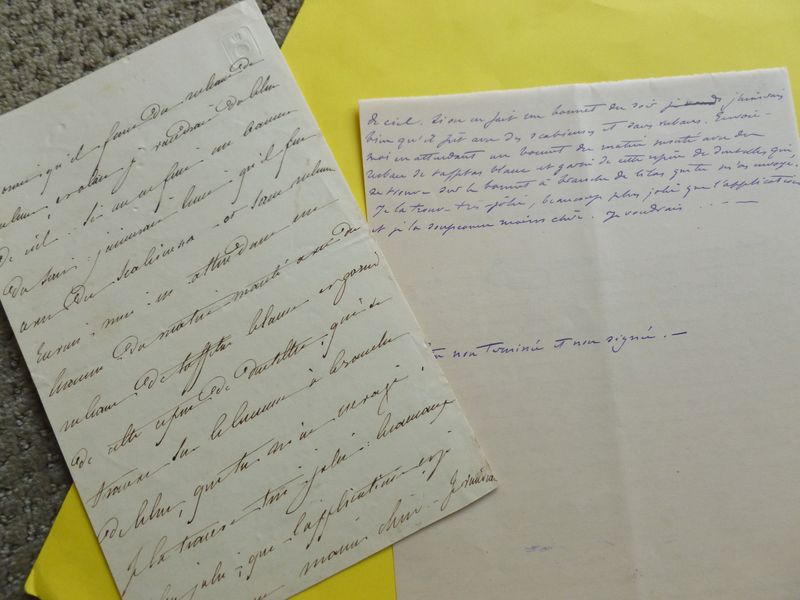 qu'il faut du ruban de
bleu
de ciel. Si on en fait un bonnet
du soir j'aimerais bien qu'il fut
avec des scabieuses et sans ruban
Envoie-moi en attendant un
bonnet du matin monté avec du
ruban de taffetas blanc et garni
de cette espèce de dentelle qui se
trouve sur le bonnet à branche
de lilas que tu m'as envoyé.
Je la trouve très jolie, beaucoup
plus jolie que l'application et je
moins chère. Je voudrais
de ciel. Si on en fait un bonnet du soir j'aimerais
bien qu'il fût avec des scabieuses et sans rubans. Envoie-
moi en attendant un bonnet du matin monté avec du
ruban de taffetas blanc et garni de cette espèce de dentelles qui
se trouve sur le bonnet à branche de lilas que tu m'as envoyé.
Je la trouve très jolie, beaucoup plus jolie que l'application
et je la soupçonne moins chère. Je voudrais - - - —
non terminée et non signée. —